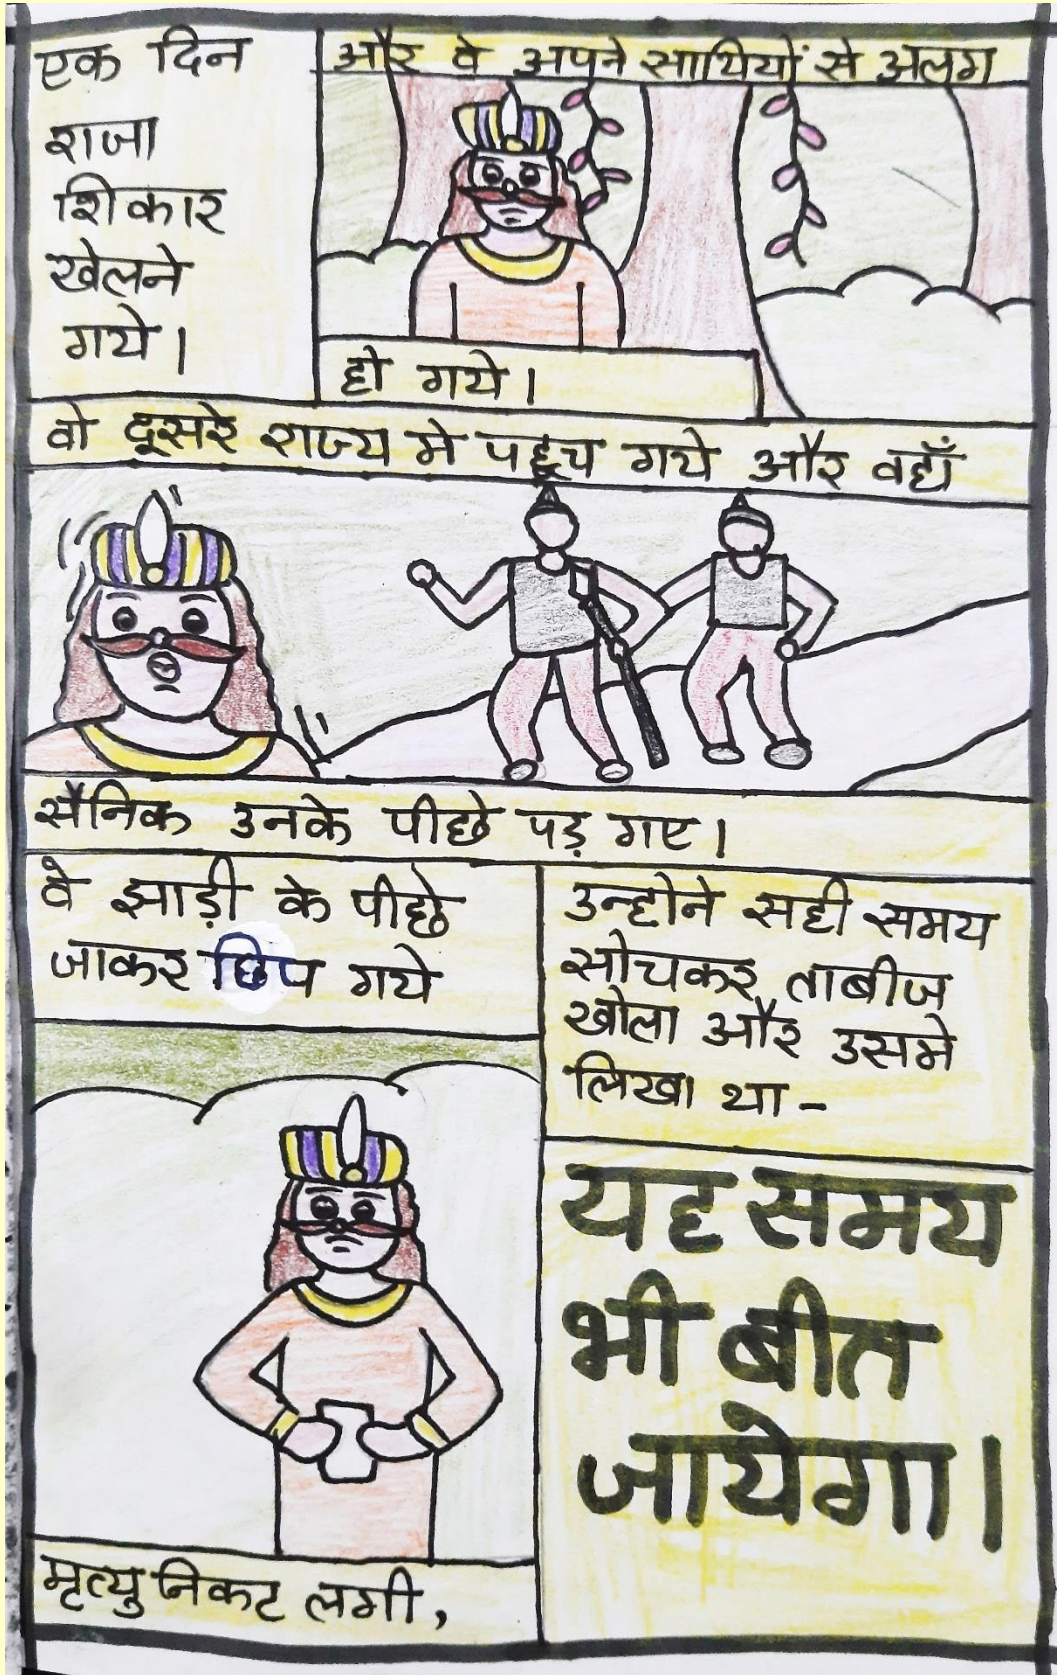 एक दिन
राजा
शिकार
खेलने
गये।
और वे अपने साथियों से अलग
हो गये।
वो दूसरे राज्य मे पहूच गये और वहाँ
सैनिक उनके पीछे पड़ गए।
वे झाड़ी के पीछे
जाकर छिप गये
मृत्यु निकट लगी,
उन्होने सही समय
सोचकर ताबीज
खोला और उसमे
लिखा था -
यह समय
भी बीत
जायेगा।